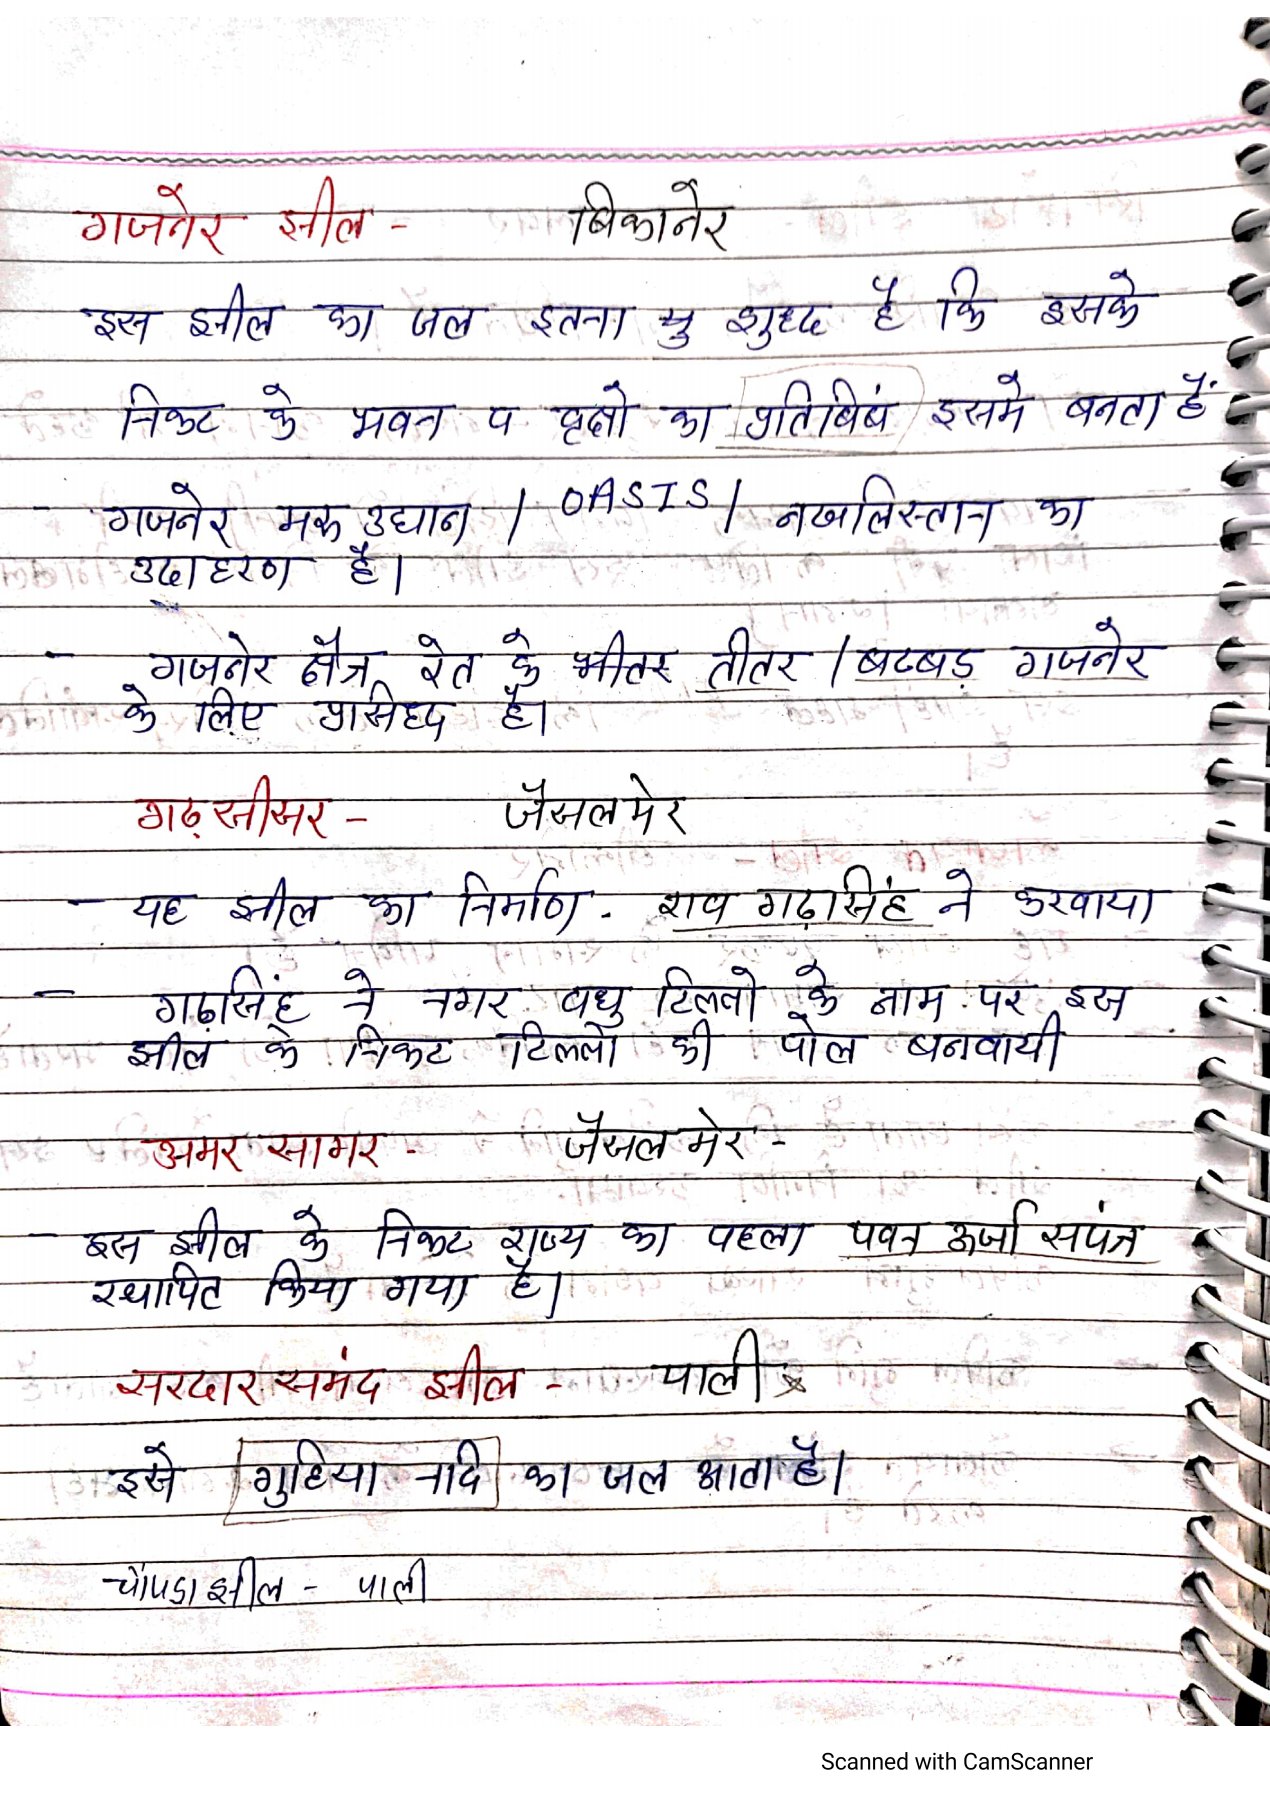 गजनेर झील - बिकानेर
इस झील का जल इतना शुध्द है कि इसके
निकट के भवन व वृक्षो का प्रतिबिंब इसमे बनता हैं
- गजनेर मरू उद्यान / OASIS / नखलिस्तान का
उदाहरण है।
- गजनेर क्षैत्र रेत के भीतर तीतर / बटबड़ गजनेर
के लिए प्रसिध्द है।
गढ़सीसर - जैसलमेर
- यह झील का निर्माण - राव गढ़सिंह ने करवाया
- गढ़सिंह ने नगर वधु टिलनो के नाम पर इस
झील के निकट टिलनो की पोल बनवायी
अमर सागर - जैसलमेर -
- इस झील के निकट राज्य का पहला पवन ऊर्जा सपंत्र
स्थापित किया गया है।
सरदार समंद झील - पाली
इसे गुहिया नदि का जल आता है।
चोपडा झील - पाली
Scanned with CamScanner